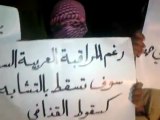 رغم المراقبة العربية الس
سوف تسقط بالتشابه
كسقوط القذافي